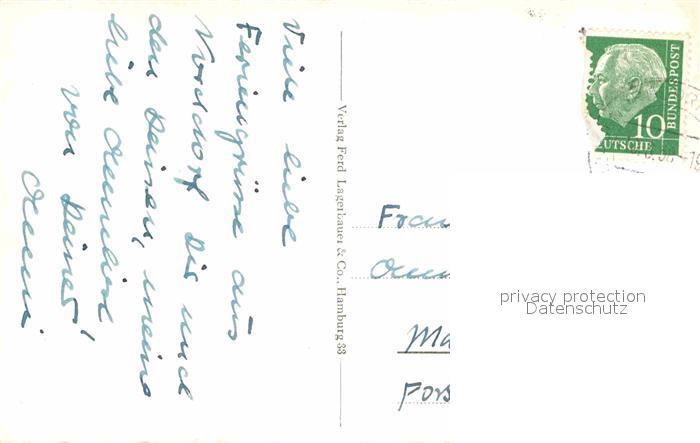 Viele liebe
Feriengrüsse aus
Norddorf Dir und
den Deinen, meine
liebe Annelies!
von Deiner
Anni
Verlag Ferd. Lagerbauer & Co., Hamburg 33
DEUTSCHE
BUNDESPOST
10
Frau
Ma
Fors
privacy protection
Datenschutz